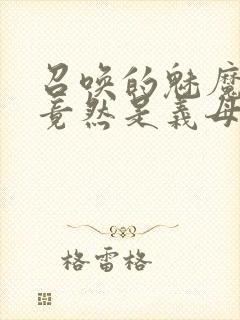 召唤的魅魔
竟然是义母
格雷格